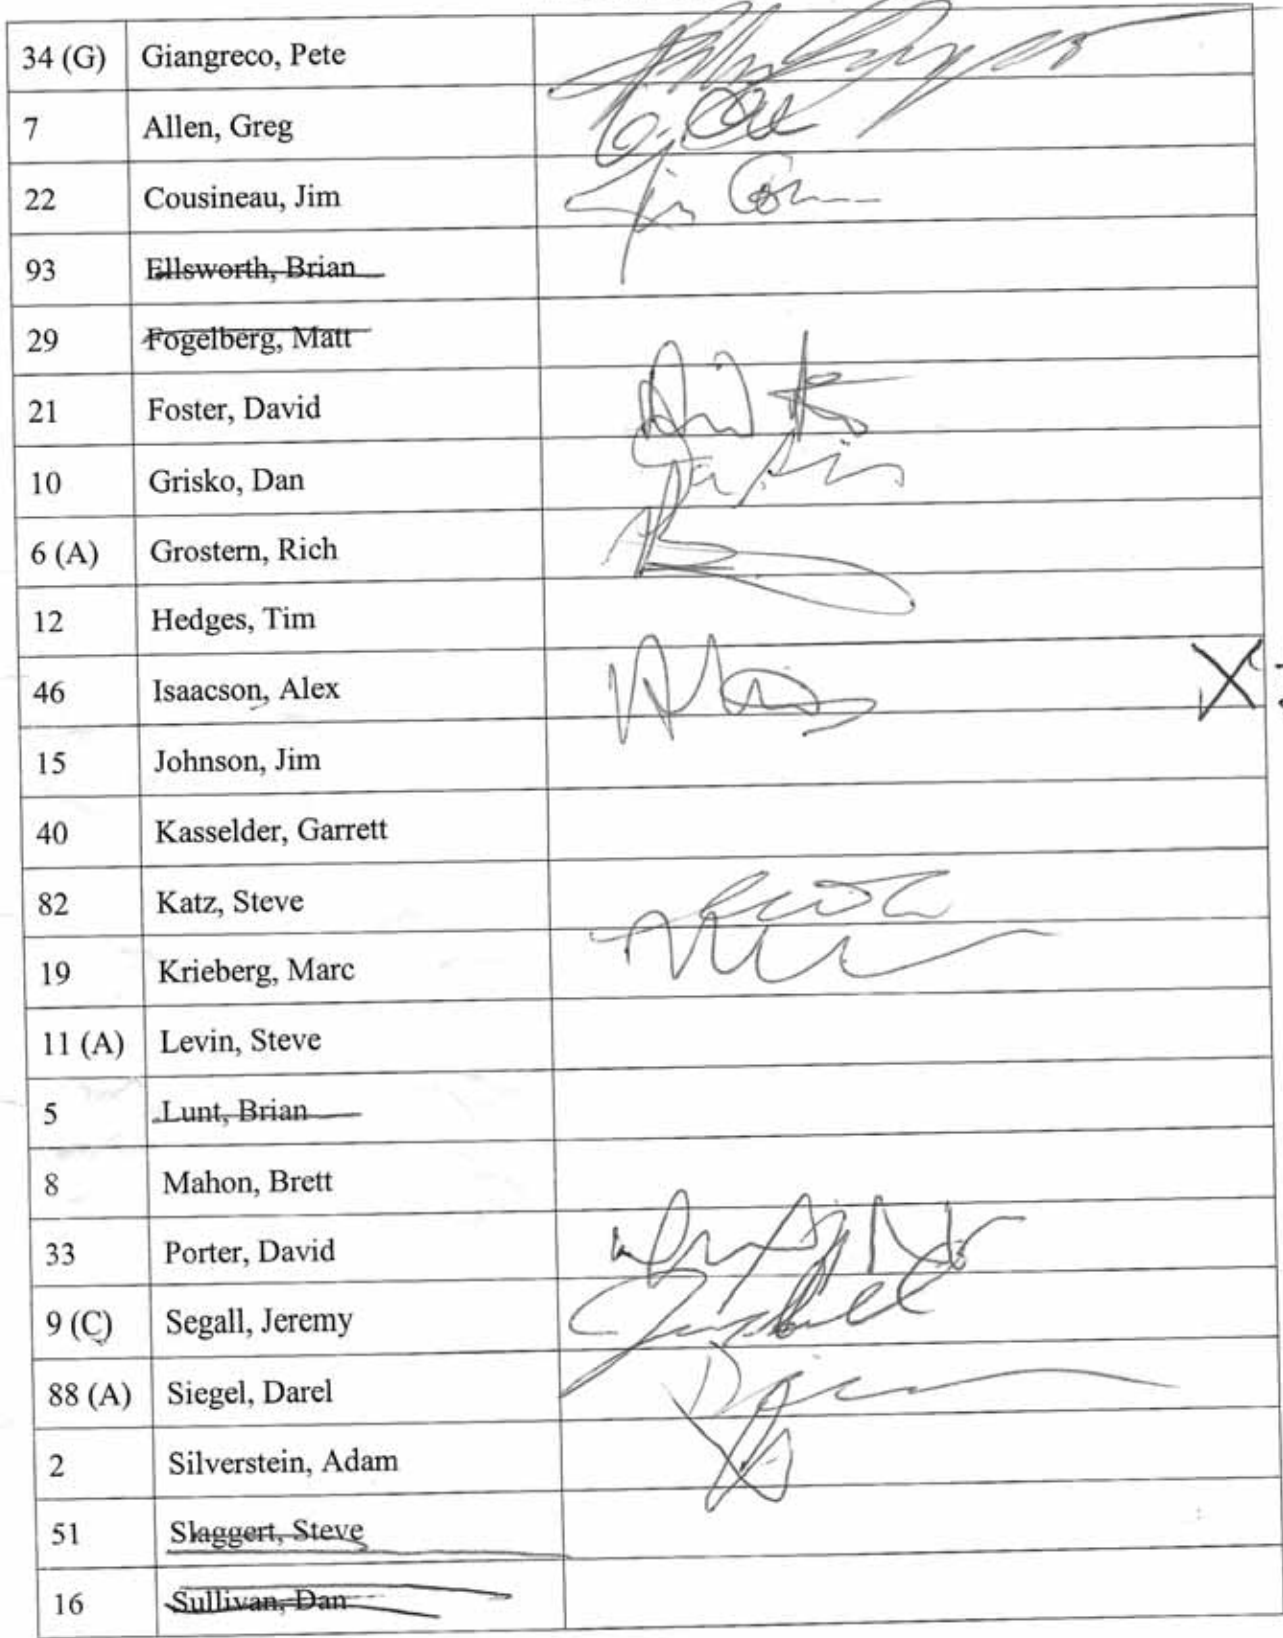 34 (G) Giangreco, Pete
7 Allen, Greg
22 Cousineau, Jim
93 Ellsworth, Brian
29 Fogelberg, Matt
21 Foster, David
10 Grisko, Dan
6 (A) Grostern, Rich
12 Hedges, Tim
46 Isaacson, Alex X
15 Johnson, Jim
40 Kasselder, Garrett
82 Katz, Steve
19 Krieberg, Marc
11 (A) Levin, Steve
5 Lunt, Brian
8 Mahon, Brett
33 Porter, David
9 (C) Segall, Jeremy
88 (A) Siegel, Darel
2 Silverstein, Adam
51 Slaggert, Steve
16 Sullivan, Dan